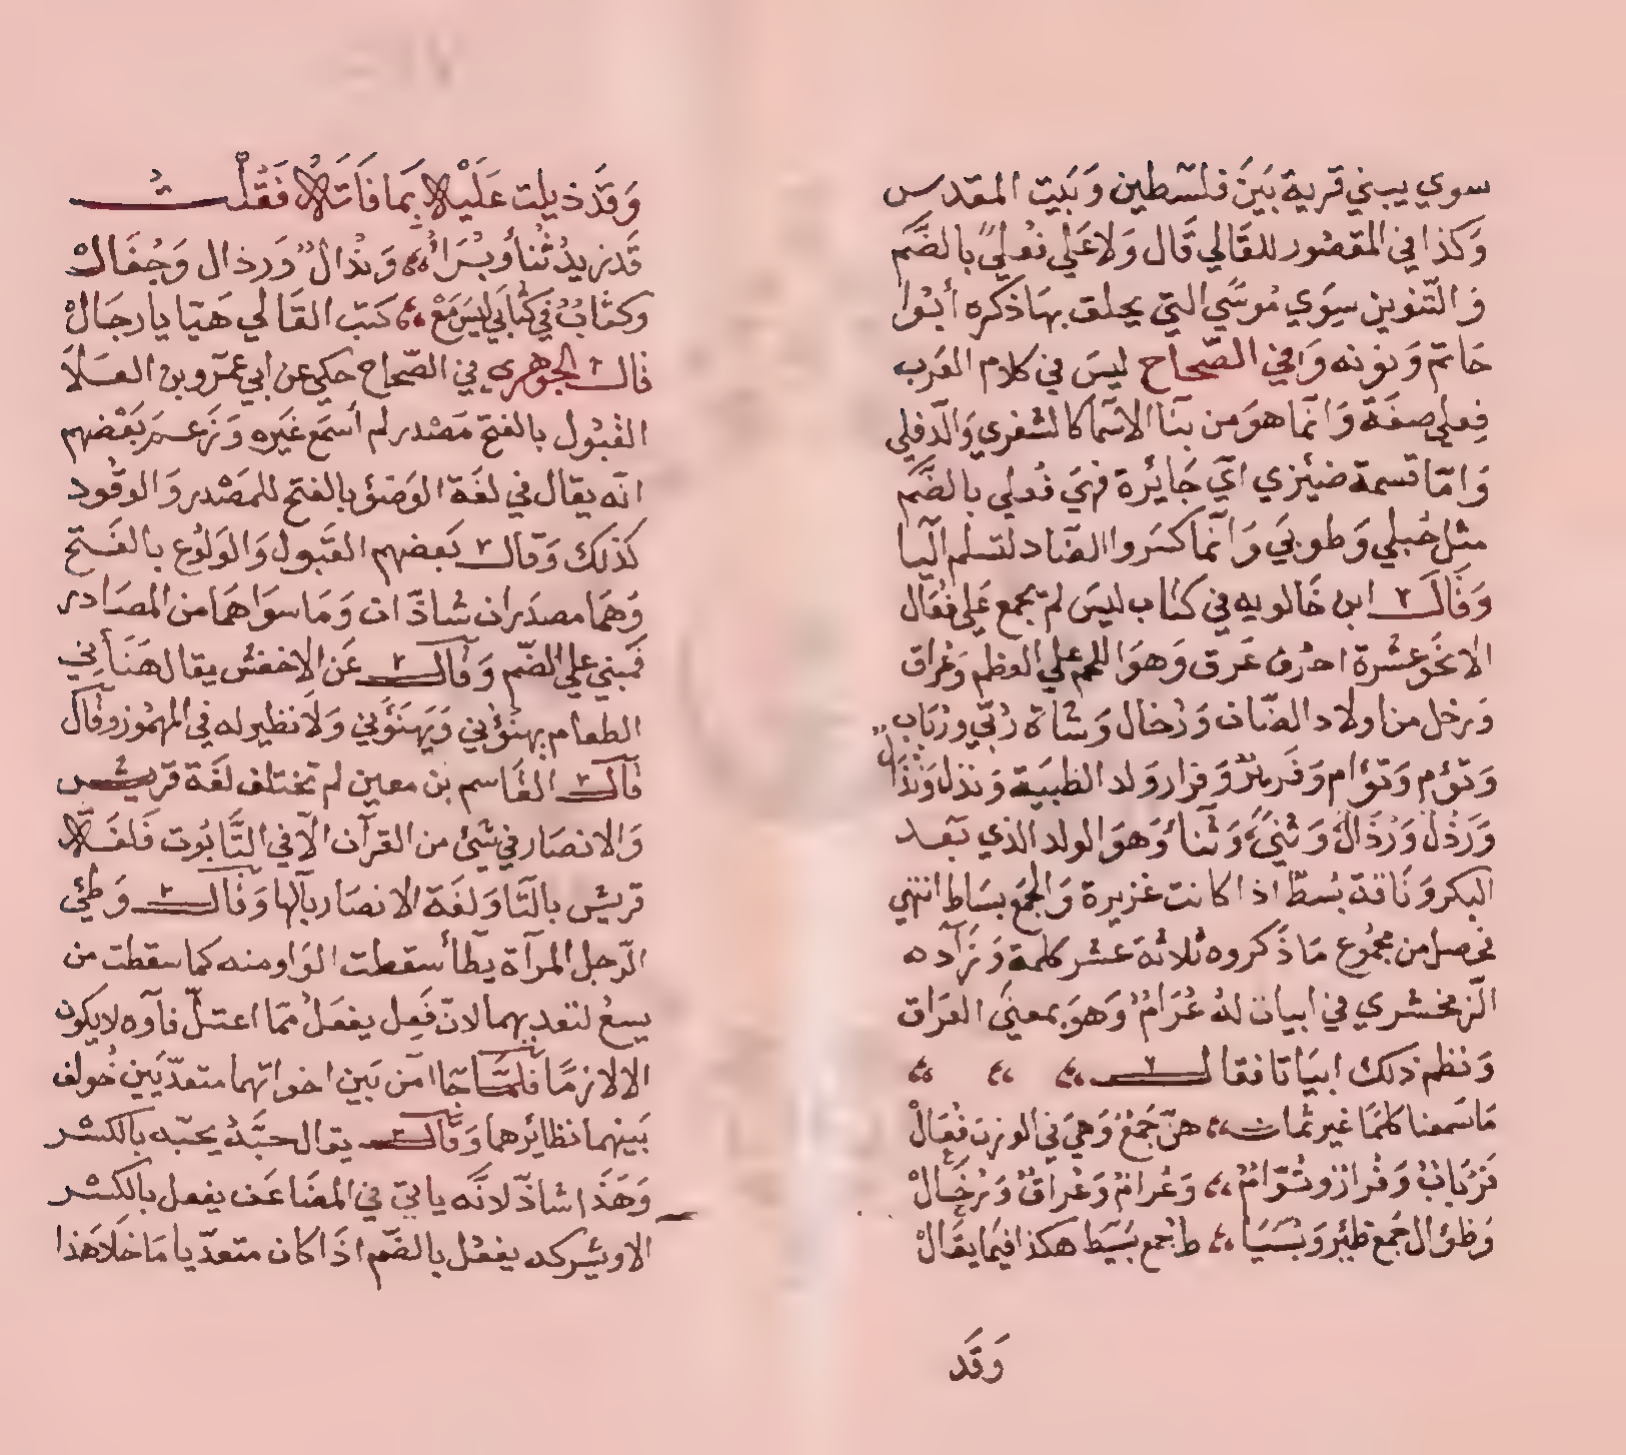 سوي يبني قرية بَينَ فلسَطين وَبَيت المقدس
وَكذا في المقصُور للقَالي قَال وَلا عَلي فعْليً بالضَّم
وَالتّنوين سِوَي مُوسًي التي يحلق بهَا ذكره أبوُا
حَاتم وَنونه وَافي الصّحاح ليسَ في كلام العَرب
فِعلي صفَة وَانّما هوَ من بنا الاسَما كالشعري وَالدّفلي
وَامّا قسمة ضئيزي ايَ جَايُرة فهيَ فُعلي بالضَّم
مثل حُبلي وَطوبيَ وَانّما كسَروا الضّاد لتسلم اليا
وَقَالَ ابن خَالويه في كتاب ليسَ لمْ يجمع عَلي فعَال
الا نحَو عشْرة احرُف عَرق وَهوَ اللحم علي العظم وَعُراق
وَرخل من اولاد الضّان وَرُخال وَشاة رُبّي ورُبَاب
وَتوُم وَتوُام وَفَرير وَفرار وَلد الظبيَة وَنذل وَنذَال
وَرَذْل وَرُذَال وَثنيَ وَثنأ وَهوَ الولد الذي بَعد
البكر وَنَاقة بسُط اذا كانت غزيرة وَالجمَع بسَاط انتهي
فحصل من مجموُع مَا ذَكروه ثلاثة عشر كلمة وَزَاده
الزّمخشري في ابيات لهُ عُرَامُ وَهوَ بمعنيَ العرَاق
وَنظم ذلك ابيَاتا فقال
مَا سَمعنا كلمَا غير ثمات هنّ جَمعْ وَهيَ في الوزن فُعَالْ
فرُبَابُ وَفُرارْ وتُوّامْ وَعُرامُ وَعُراقُ وَرُخَالْ
وَظؤال جَمع ظئِر وَبسَيَا ط جمع بَسَيط هكذا فيمَا يقَالْ
وَقَد
وَقَد ذيلت عَلَيْه بِمَا فَاتَهُ فَقُلْتُ
قَد زيدُ ثُنأ وَبُرَاُ وَنُذالُ وَرذال وَجُفَالْ
وكثابُ في كتَابي ليسَ مَعْ كتب القَالي هَيّا يا رجَالْ
قال الجوَهري في الصّحاح حكي عن ابي عمَرو بن العَلاَ
القبُول بالفتح مَصْدر لم أسَمع غَيره وَزَعَم بَعْضهم
انّه يقال في لغَة الوَضؤ بالفتح للمَصْدر وَالوقوُد
كذلك وَقال بَعضهم القَبول وَالوَلوُع بالفَتح
وَهَما مصدَران شاذّان وَمَا سوَاهَما من المصَادر
فمَبني علي الضّم وَقال عَن الاخفش يقال هَنَأني
الطعام يهنؤُني وَيَهنَؤُني وَلاَ نظير له في المهمُوز وقال
قال القَاسم بن معين لم تختلف لغَة قريش
وَالانصَار في شئ من القرآن الاّ في التَّابُوت فَلغَة
قريش بالتَّا وَلغَة الانصَار بالها وَقال وَطئِي
الرّجل المرآة يطأ سقطت الوَاو منه كما سقطت من
يسعُ لتعديهما لانّ فَعِل يفعَلُ ممّا اعتلّ فاؤه لا يكون
الا لازمَا فلمَّا جَا امن بَين اخواتهما متعدّيَين خُولف
بَينهما نظائِرهما وَقال يقال حبَّهُ يحبّه بالكسْر
وَهَذا شاذّ لانَّه ياتي في المضَاعَف يفعل بالكسْر
الا ويشركه يفعُل بالضّم اذَا كان متعدّيا مَا خلاَ هَذا